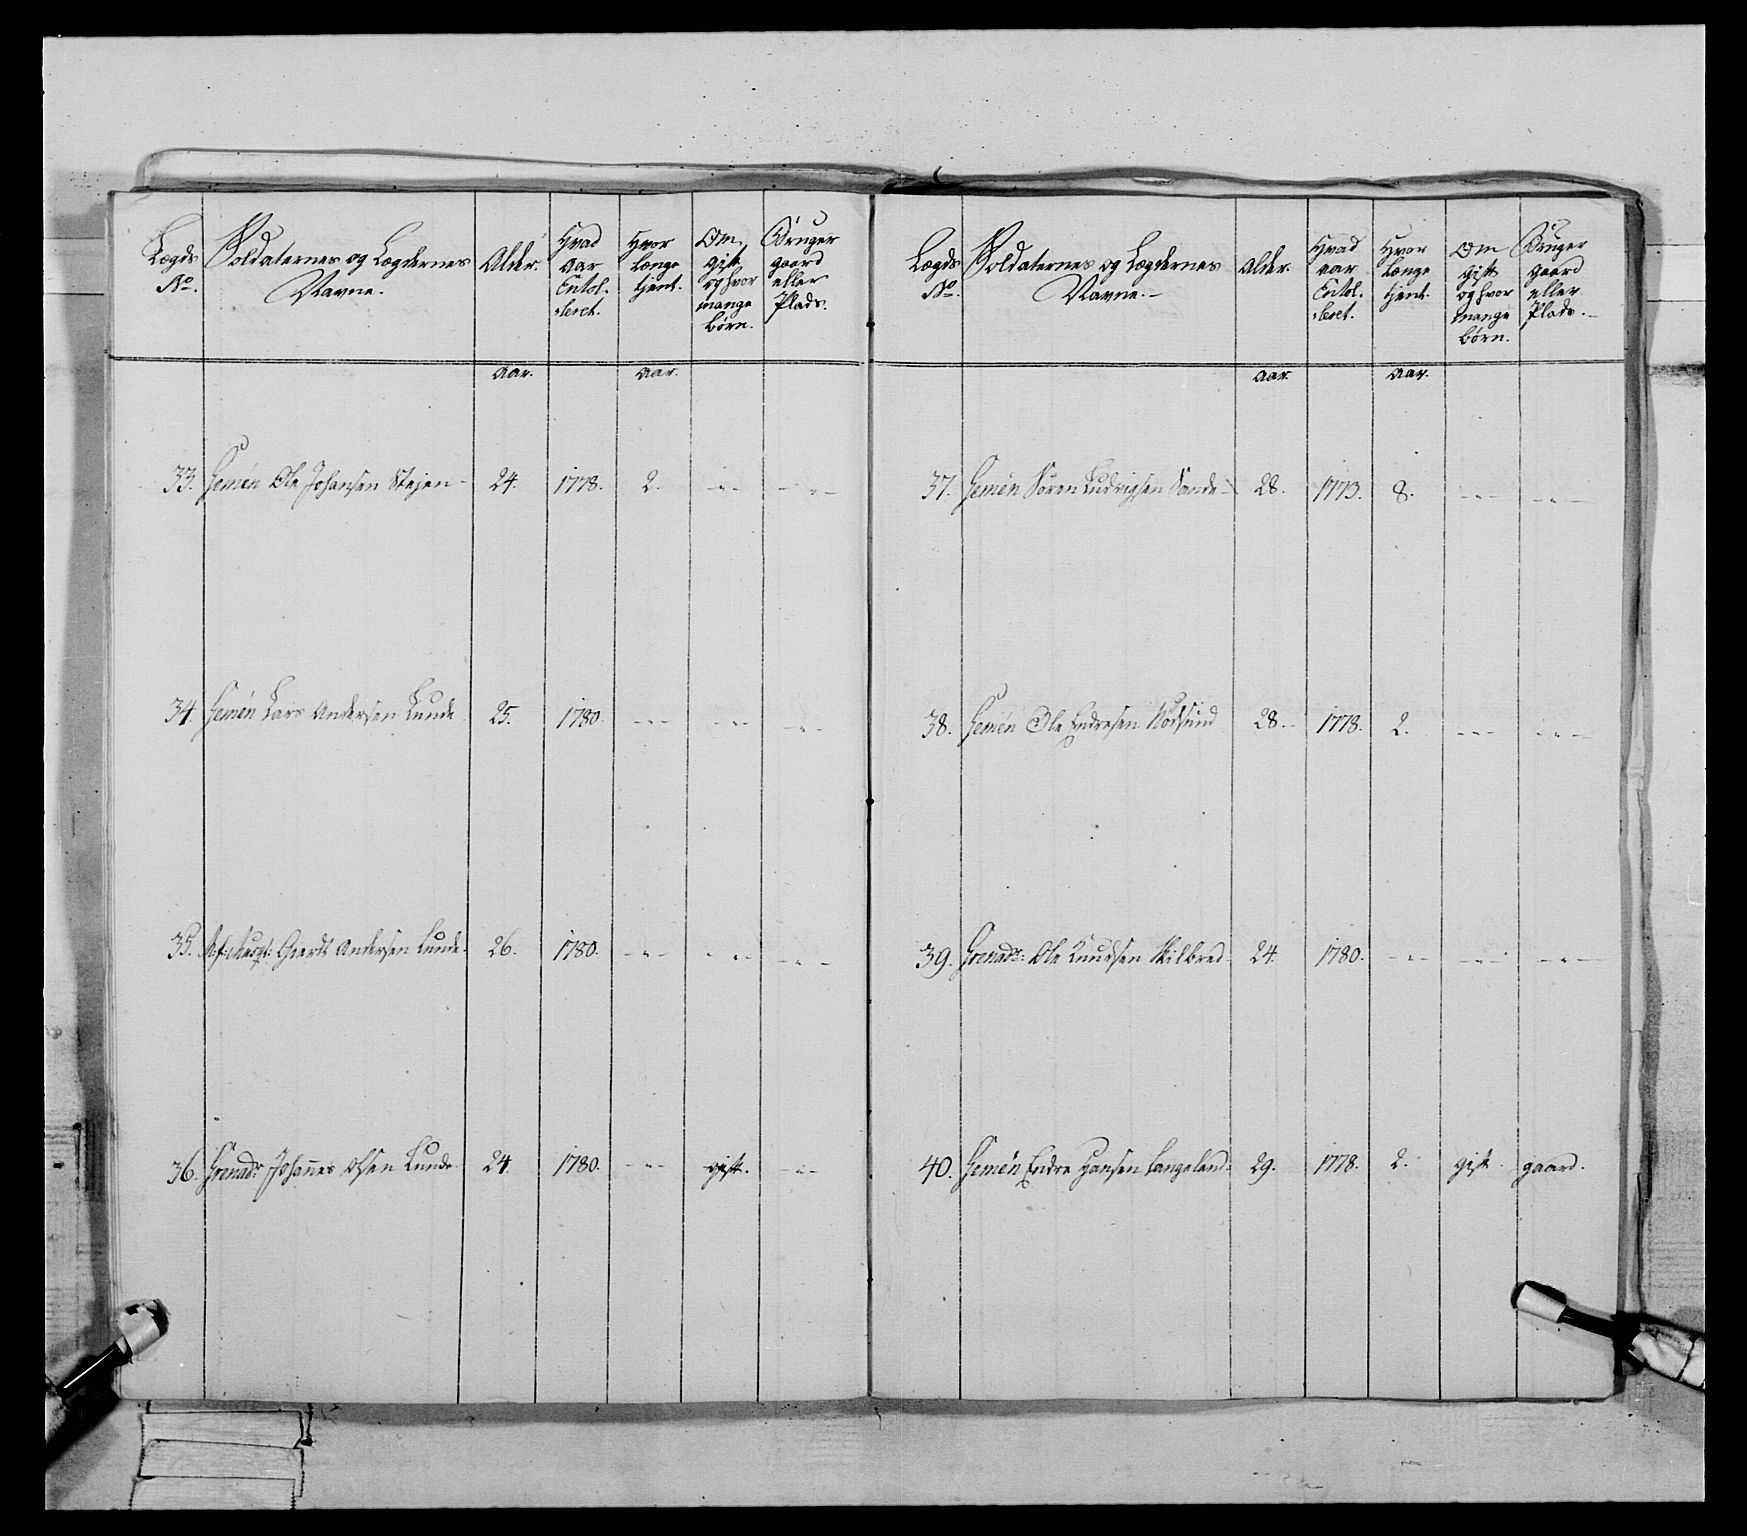 Lægds No.
Soldaternes og Lægdernes Navne.
Alder.
Hvad Aar Enrol-leret.
Hvor længe tjent.
Om gift og hvor mange børn.
Bruger gaard eller Plads.
Aar. Aar.
33. Gemēn Ole Johansen Stejen - 24. 1778. 2. -"- -"-
34. Gemēn Lars Andersen Lunde 25. 1780. -"- -"- -"-
35. Geerdt Andersen Lunde. 26. 1780. -"- -"- -"-
36. Grenadr. Johannes Olsen Lunde 24. 1780. -"- gift. -"-
Lægds No.
Soldaternes og Lægdernes Navne.-
Alder.
Hvad aar Enrol-leret.
Hvor længe tjent.
Om gift og hvor mange børn.
Bruger gaard eller Plads.-
Aar. Aar.
37. Gemēn Søren Ludvigsen Sande - 28. 1773. 8. -"- -"-
38. Gemēn Ole Endresen 28. 1778. 2. -"- -"-
39. Grenadr: Ole Knudsen Skilbred 24. 1780. -"- -"- -"-
40. Gemēn Endre Hansen Langeland 29. 1778. 2. gift. gaard.